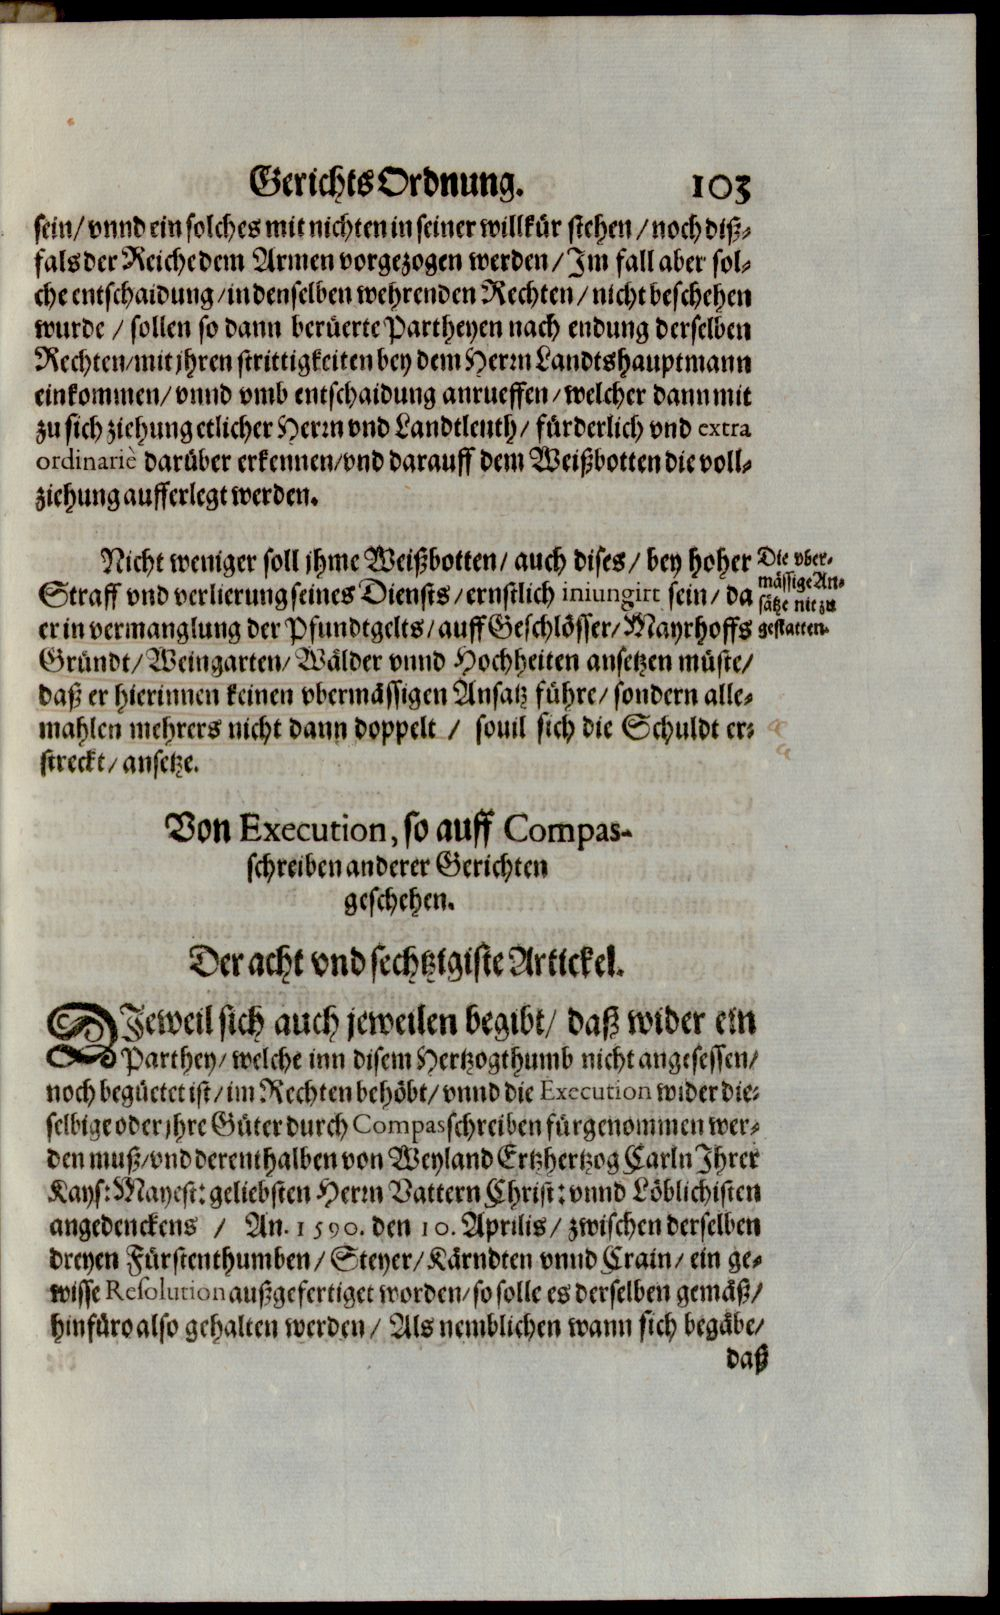 GerichtsOrdnung. 103
sein/ vnnd ein solches mit nichten in seiner willkür stehen / noch diß-
fals der Reiche dem Armen vorgezogen werden / Im fall aber sol-
che entschaidung / in denselben wehrenden Rechten / nicht beschehen
wurde / sollen so dann berüerte Partheyen nach endung derselben
Rechten/ mit jhren strittigkeiten bey dem Herrn Landtshauptmann
einkommen/ vnnd vmb entschaidung anrueffen / welcher dann mit
zu sich ziehung etlicher Herrn vnd Landtleuth / fürderlich vnd extra
ordinariè darüber erkennen/ vnd darauff dem Weißbotten die voll-
ziehung aufferlegt werden.
Nicht weniger soll jhme Weißbotten/ auch dises / bey hoher
Straff vnd verlierung seines Diensts / ernstlich iniungirt sein / da
er in vermanglung der Pfundtgelts / auff Geschlösser/ Mayrhoffs
Gründt/ Weingarten/ Wälder vnnd Hochheiten ansetzen müste/
daß er hierinnen keinen vbermässigen Ansatz führe / sondern alle-
mahlen mehrers nicht dann doppelt / souil sich die Schuldt er-
streckt / ansetze.
Die vber-
mässige An-
sätze nit zu
gestatten.
Von Execution, so auff Compas-
schreiben anderer Gerichten
geschehen.
Der acht vnd sechtzigiste Artickel.
DJeweil sich auch jeweilen begibt/ daß wider ein
Parthey/ welche inn disem Hertzogthumb nicht angesessen/
noch begüetet ist / im Rechten behöbt/ vnnd die Execution wider die-
selbige oder jhre Güter durch Compasschreiben fürgenommen wer-
den muß/ vnd derenthalben von Weyland Ertzhertzog Carln Ihrer
Kays: Mayest: geliebsten Herrn Vattern Christ: vnnd Löblichisten
angedenckens / An. 1590. den 10. Aprilis / zwischen derselben
dreyen Fürstenthumben / Steyer / Kärndten vnnd Crain / ein ge-
wisse Resolution außgefertiget worden/ so solle es derselben gemäß/
hinfüro also gehalten werden / Als nemblichen wann sich begäbe/
daß